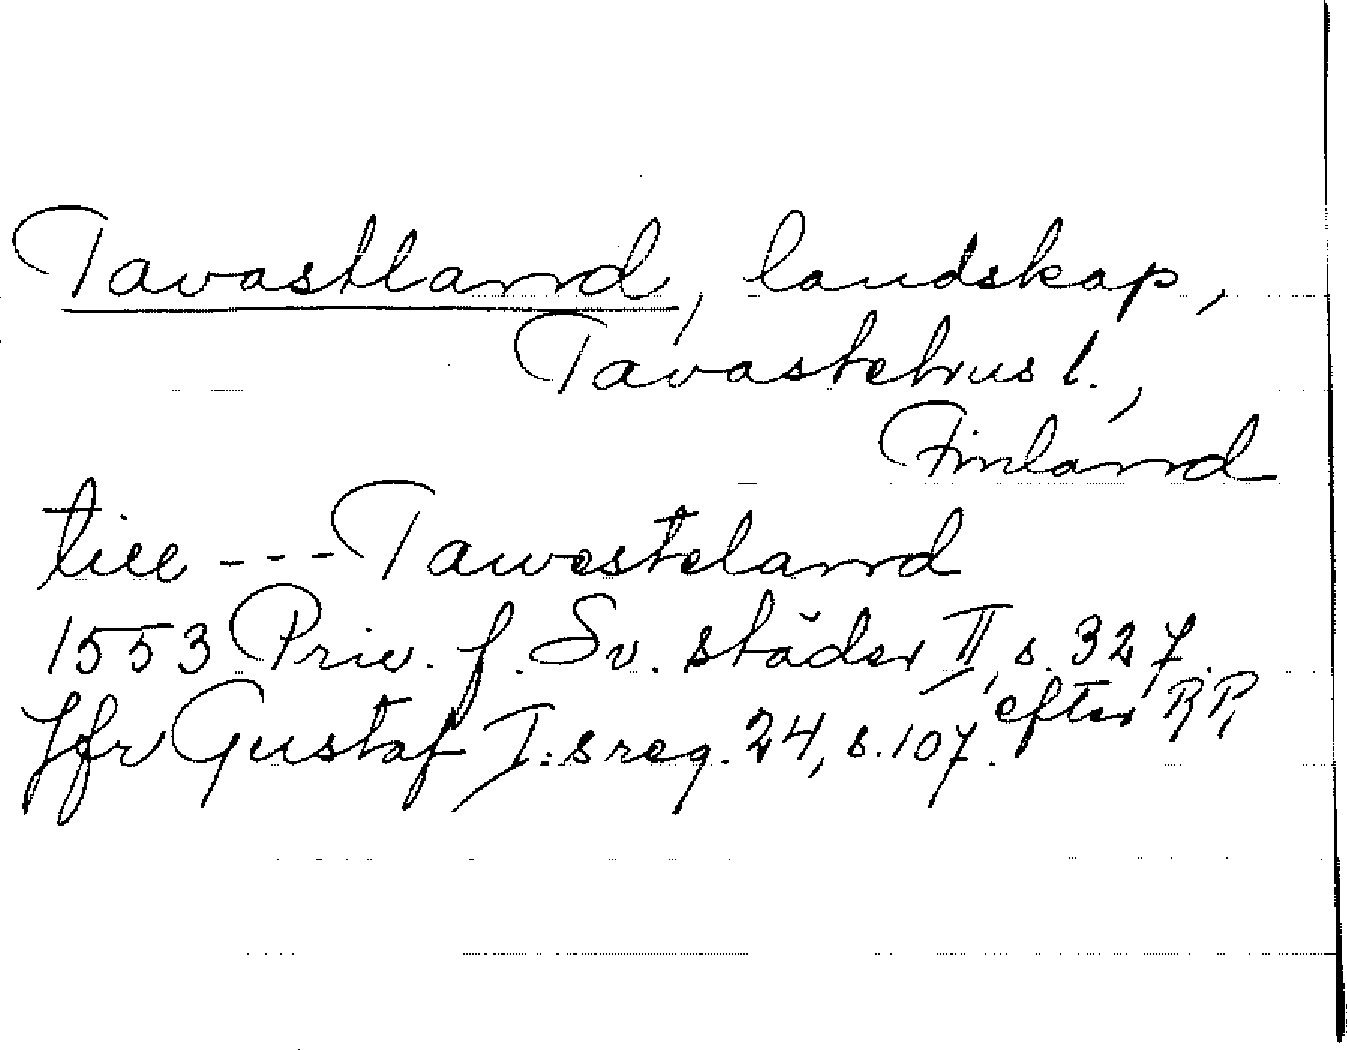 Tavastland, landskap,
Tavastehus l.,
Finland
till --- Tawesteland
1553 Priv. f. Sv. städer II, s. 327.
efter RR,
Jfr Gustaf I:s reg. 24, s. 107.